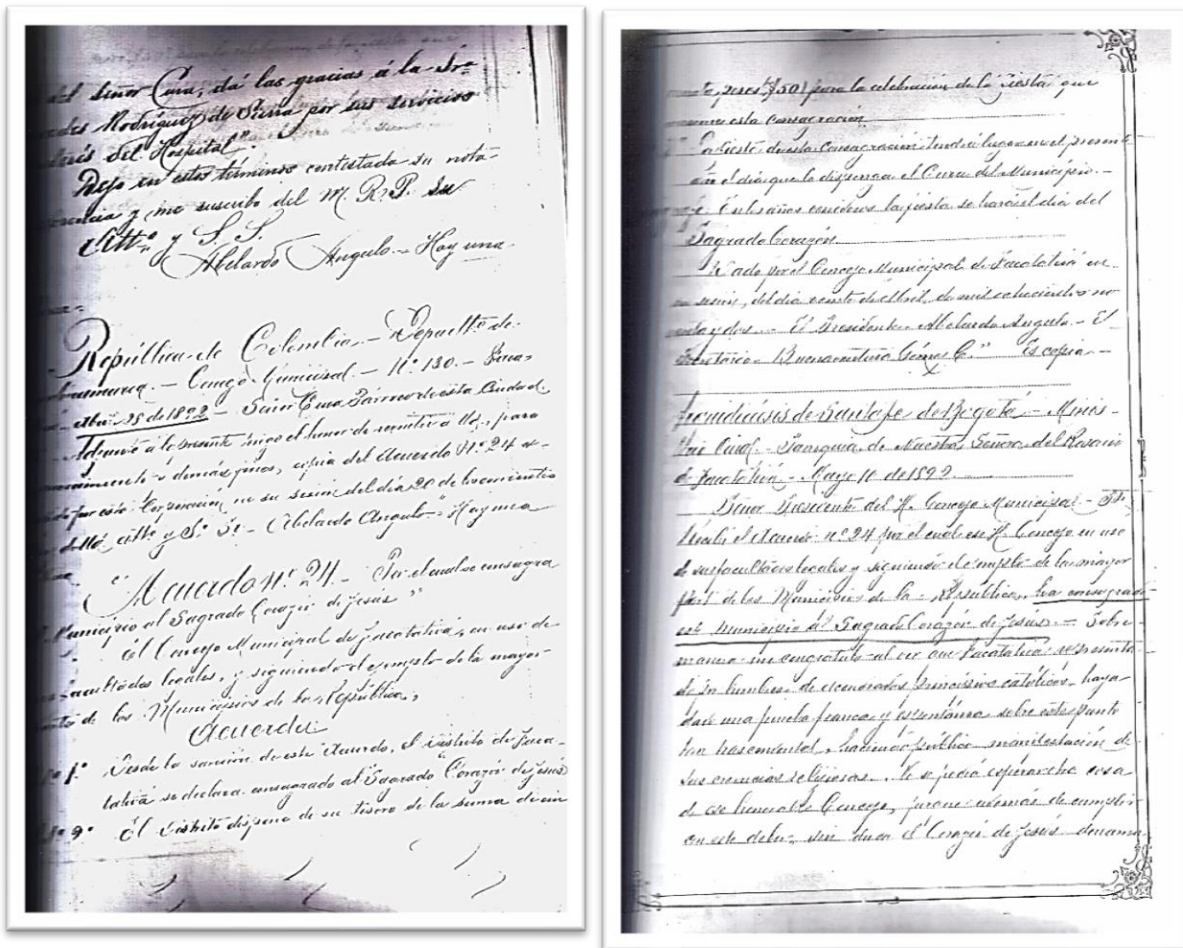 del Señor Cura, dá las gracias á la Sra
Rodríguez de Sierra por sus servicios
del Hospital".
Dejo en estos términos contestada su nota
y me suscribo del M. R. P. Su
Atto y S. S.
Abelardo Angulo - Hay una
República de Colombia. - Depuetto de
- Concejo Municipal. - N.º 130. -
25 de 1892 - Señor Cura Párroco de esta Ciudad.
Adjunto á la presente tengo el honor de remitir a Ud, para
y demás fines, copia del Acuerdo Nº 24
por esta Corporación en su sesión del día 20 de los corrientes
atto y S. S. - Abelardo Angulo - Hay una
"Acuerdo n.º 24 - Por el cual se consagra
Municipio al Sagrado Corazón de Jesús"
El Concejo Municipal de Facatativá, en uso de
facultades legales, y siguiendo el ejemplo de la mayor
de los Municipios de la República,
Acuerda
1.º Desde la sanción de este Acuerdo, el Distrito de Faca-
tativá se declara consagrado al Sagrado Corazón de Jesús
El Distrito dispone de su Tesoro de la suma de cin
pesos $50) para la celebración de la fiesta que
esta consagración
La fiesta de esta consagración tendrá lugar en el present
año el día que lo disponga el Cura del Municipio. -
En los años venideros la fiesta se hará el día del
Sagrado Corazón.
Dado por el Concejo Municipal de Facatativá en
sesión, del día veinte de Abril, de mil ochocientos no
venta y dos. - El Presidente - Abelardo Angulo - El
Secretario - Buenaventura Gómez C." Es copia. -
de Santafe de Bogotá - Minis-
Parroquia de Nuestra Señora del Rosario
de Facatativá - Mayo 10 de 1892.
Señor Presidente del H. Concejo Municipal -
Recibí el Acuerdo nº 24 por el cual ese H. Concejo en uso
de sus facultades legales y siguiendo el ejemplo de la mayor
part de los Municipios de la República, ha consagrado
este Municipio al Sagrado Corazón de Jesús. - Sobre-
manera me congratulo al ver que Facatativá representa
de acendrados principios católicos, haya
dado una prueba franca y espontánea sobre este punto
tan trascendental, haciendo pública manifestación de
sus creencias religiosas. No se podía esperar otra cosa
de ese honorable Concejo, porque además de cumplir
con este deber, sin duda el Corazón de Jesús derrama